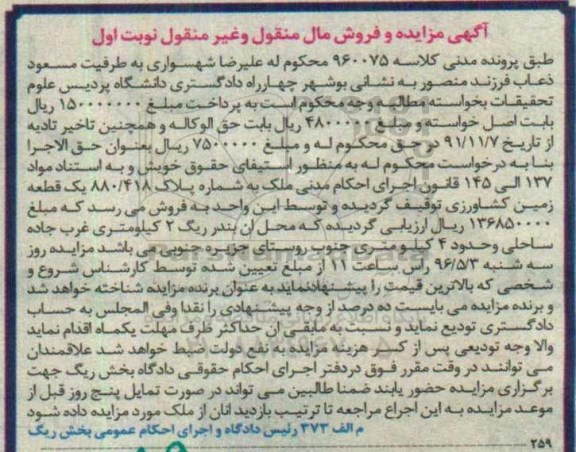 آگهی مزایده و فروش مال منقول وغیر منقول نوبت اول
طبق پرونده مدنی کلاسه ۹۶۰۰۷۵ محکوم له علیرضا شهسواری به طرفیت مسعود
ذعاب فرزند منصور به نشانی بوشهر چهارراه دادگستری دانشگاه پردیس علوم
تحقیقات بخواسته مطالبه وجه محکوم است به پرداخت مبلغ ۱۵۰۰۰۰۰۰۰ ریال
بابت اصل خواسته و مبلغ ۴۸۰۰۰۰۰ ریال بابت حق الوکاله و همچنین تاخیر تادیه
از تاریخ ۹۱/۱۱/۷ در حق محکوم له و مبلغ ۷۵۰۰۰۰۰ ریال بعنوان حق الاجرا
بنا به درخواست محکوم له به منظور استیفای حقوق خویش و به استناد مواد
۱۳۷ الی ۱۴۵ قانون اجرای احکام مدنی ملک به شماره پلاک ۸۸۰/۴۱۸ یک قطعه
زمین کشاورزی توقیف گردیده و توسط این واحد به فروش می رسد که مبلغ
۱۳۶۸۵۰۰۰۰ ریال ارزیابی گردیده که محل ان بندر ریگ ۲ کیلومتری غرب جاده
ساحلی وحدود ۴ کیلو متری جنوب روستای جزیره جنوبی می باشد مزایده روز
سه شنبه ۹۶/۵/۳ راس ساعت ۱۱ از مبلغ تعیین شده توسط کارشناس شروع و
شخصی که بالاترین قیمت را پیشنهادنماید به عنوان برنده مزایده شناخته خواهد شد
و برنده مزایده می بایست ده درصد از وجه پیشنهادی را نقدا وفی المجلس به حساب
دادگستری تودیع نماید و نسبت به مابقی ان حداکثر ظرف مهلت یکماه اقدام نماید
والا وجه تودیعی پس از کسر هزینه مزایده به نفع دولت ضبط خواهد شد علاقمندان
می توانند در وقت مقرر فوق دردفتر اجرای احکام حقوقی دادگاه بخش ریگ جهت
برگزاری مزایده حضور یابند ضمنا طالبین می تواند در صورت تمایل پنج روز قبل از
موعد مزایده به این اجراع مراجعه تا ترتیب بازدید انان از ملک مورد مزایده داده شود
م الف ۳۷۳ رئیس دادگاه و اجرای احکام عمومی بخش ریگ
۲۵۹